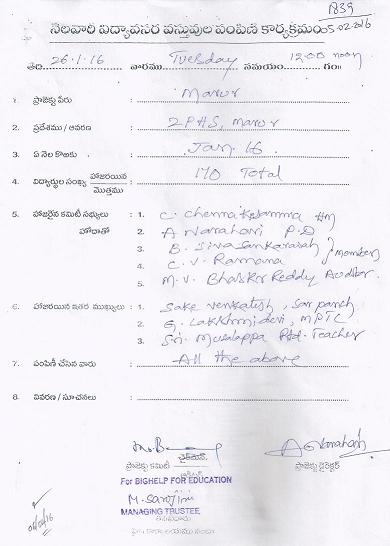 1839
05-02-2016
నెలవారి విద్యావసర వస్తువుల పంపిణి కార్యక్రమం
తేది 26.1.16 వారము Tuesday సమయం 12.00 noon గం॥
1. ప్రాజెక్టు పేరు Marur
2. ప్రదేశము / ఆవరణ ZPHS, Marur
3. ఏ నెల కొఱకు Jan. 16
4. విద్యార్థుల సంఖ్య హాజరయిన / మొత్తము 170 Total
5. హాజరైన కమిటి సభ్యులు 1. C. Chennakesamma HM
హోదాతో 2. A Narahari P.D
3. B. Sivasankaraiah
4. C. V. Ramana } members
5. M. V. Bhaskr Reddy Auditor.
6. హాజరయిన ఇతర ముఖ్యులు 1. Sake Venkatesh, Sarpanch
2. G. Lakshmidevi, MPTC
3. Sri. Musalappa Rtd. Teacher
7. పంపిణీ చేసిన వారు All the above
8. వివరణ / సూచనలు
ఛైర్మెన్,
ప్రాజెక్టు కమిటి
ప్రాజెక్టు డైరెక్టర్
For BIGHELP FOR EDUCATION
M. Sarojini
MANAGING TRUSTEE